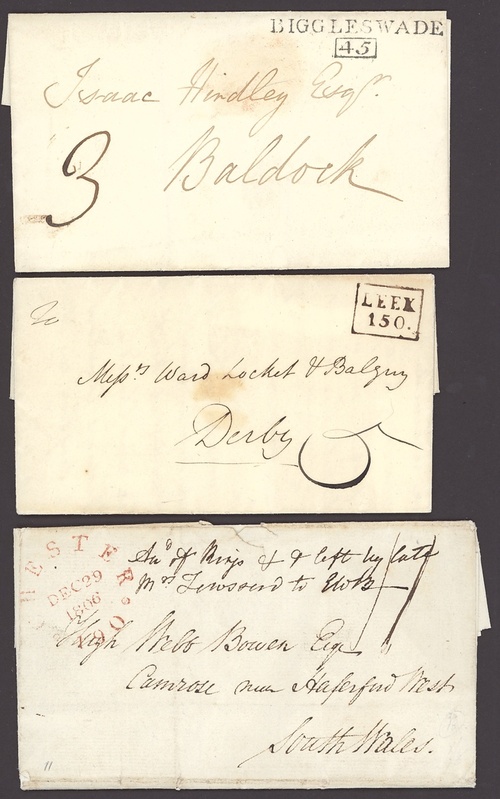 BIGGLESWADE
45
Isaac Hindley Esqr.
3 Baldock
LEEK
150.
To
Messrs Ward Locket & Balguy
Derby 5
HESTER
DEC 29
1806
190
of Rings & left by late
Mrs Townsend to
11
Hugh Webb Bowen Esqr
Camrose near Haferford West
South Wales.
11